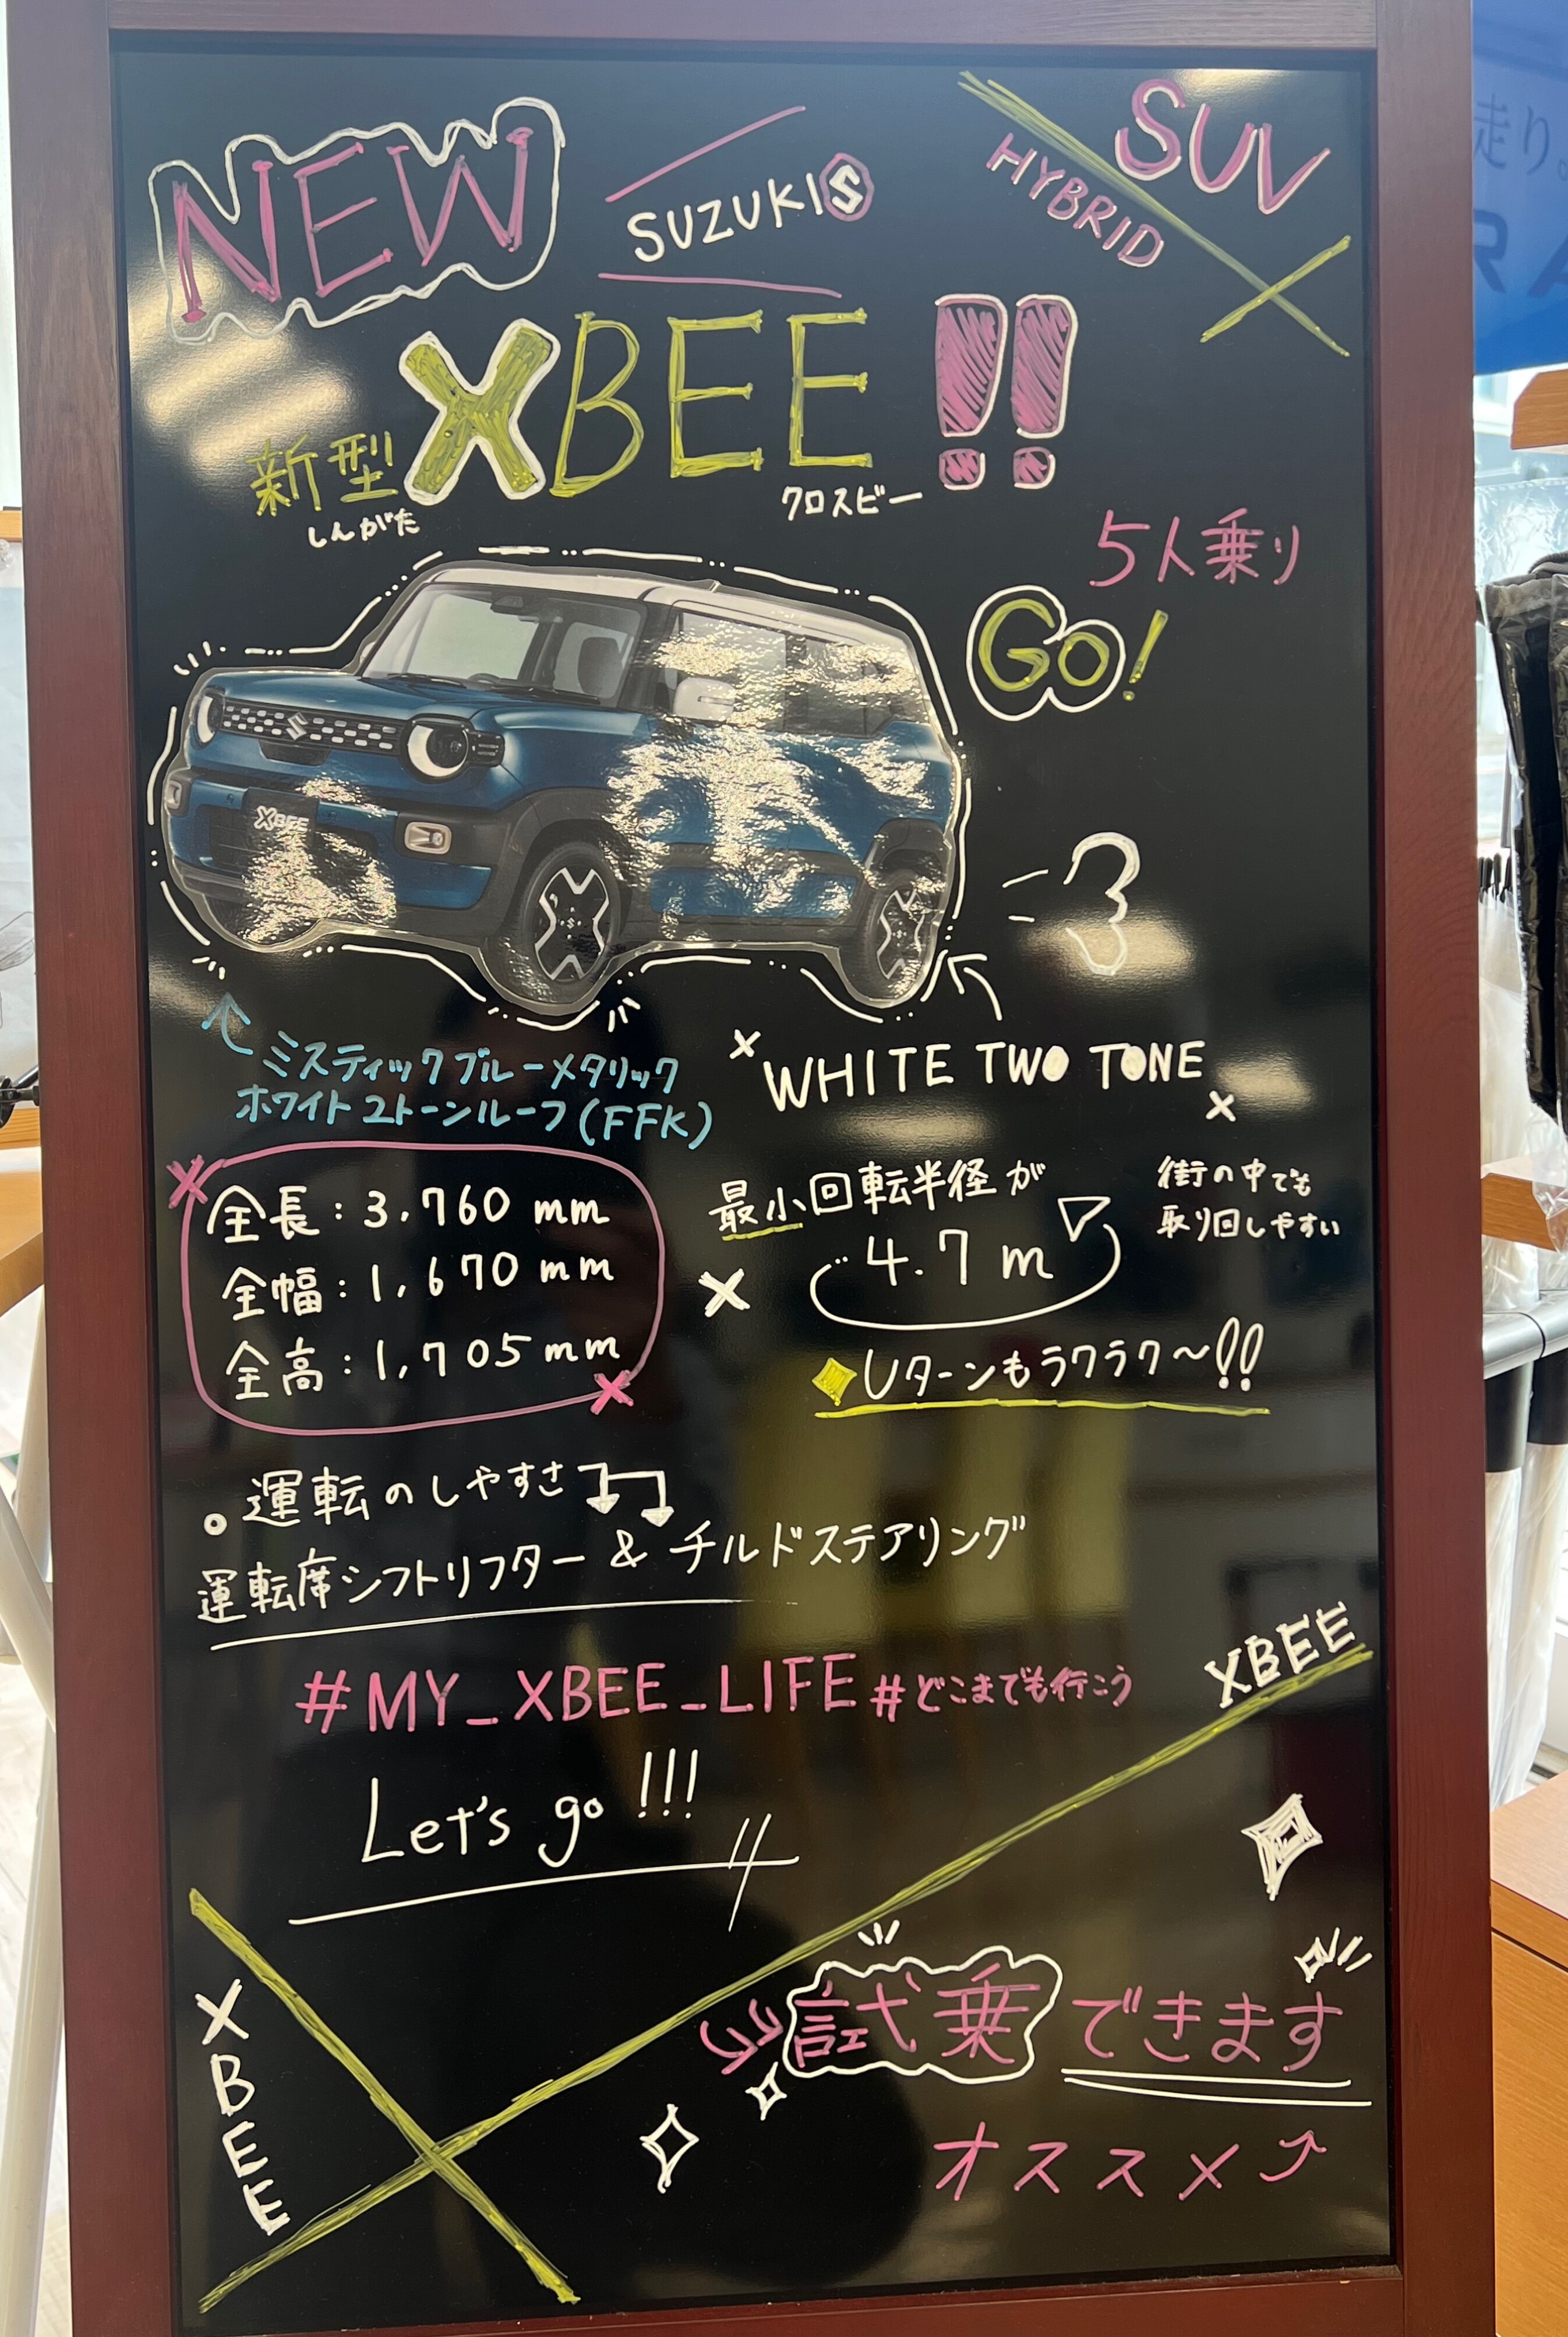 NEW
SUZUKI S
SUV
HYBRID
新型 XBEE!!
しんがた
クロスビー
5人乗り
GO!
XBEE
ミスティックブルーメタリック
ホワイト2トーンルーフ(FFK)
WHITE TWO TONE
全長:3,760mm
全幅:1,670mm
全高:1,705mm
最小回転半径が
4.7m
街の中でも
取り回しやすい
Uターンもラクラク〜!!
。運転のしやすさ
運転席シフトリフター & チルドステアリング
#MY_XBEE_LIFE #どこまでも行こう
Let's go!!!
XBEE
XBEE
試乗できます
オススメ
走り。
RA